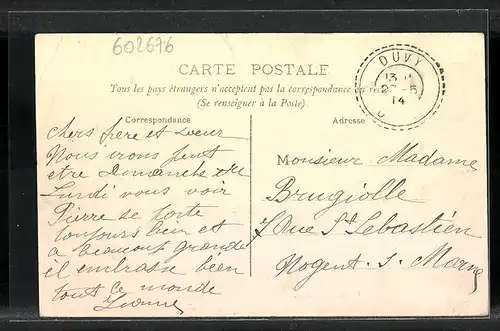 602676
CARTE POSTALE
Tous les pays étrangers n'acceptent pas la correspondance au recto
(Se renseigner à la Poste)
DUVY
13
27-5
14
Correspondance
Adresse
chers frere et soeur
Nous irons peut
etre Dimanche ou
Lundi vous voir
Pierre se porte
toujours bien et
a beaucoup grandi
il embrasse bien
tout ce monde
Yvonne
Monsieur Madame
Brugiolle
7 Rue St Sebastien
Nogent. s. Marne